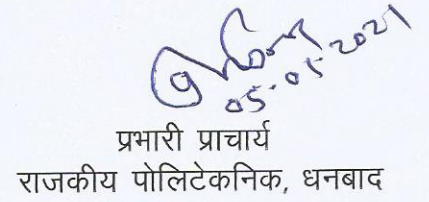 05-05-2021
प्रभारी प्राचार्य
राजकीय पोलिटेकनिक, धनबाद